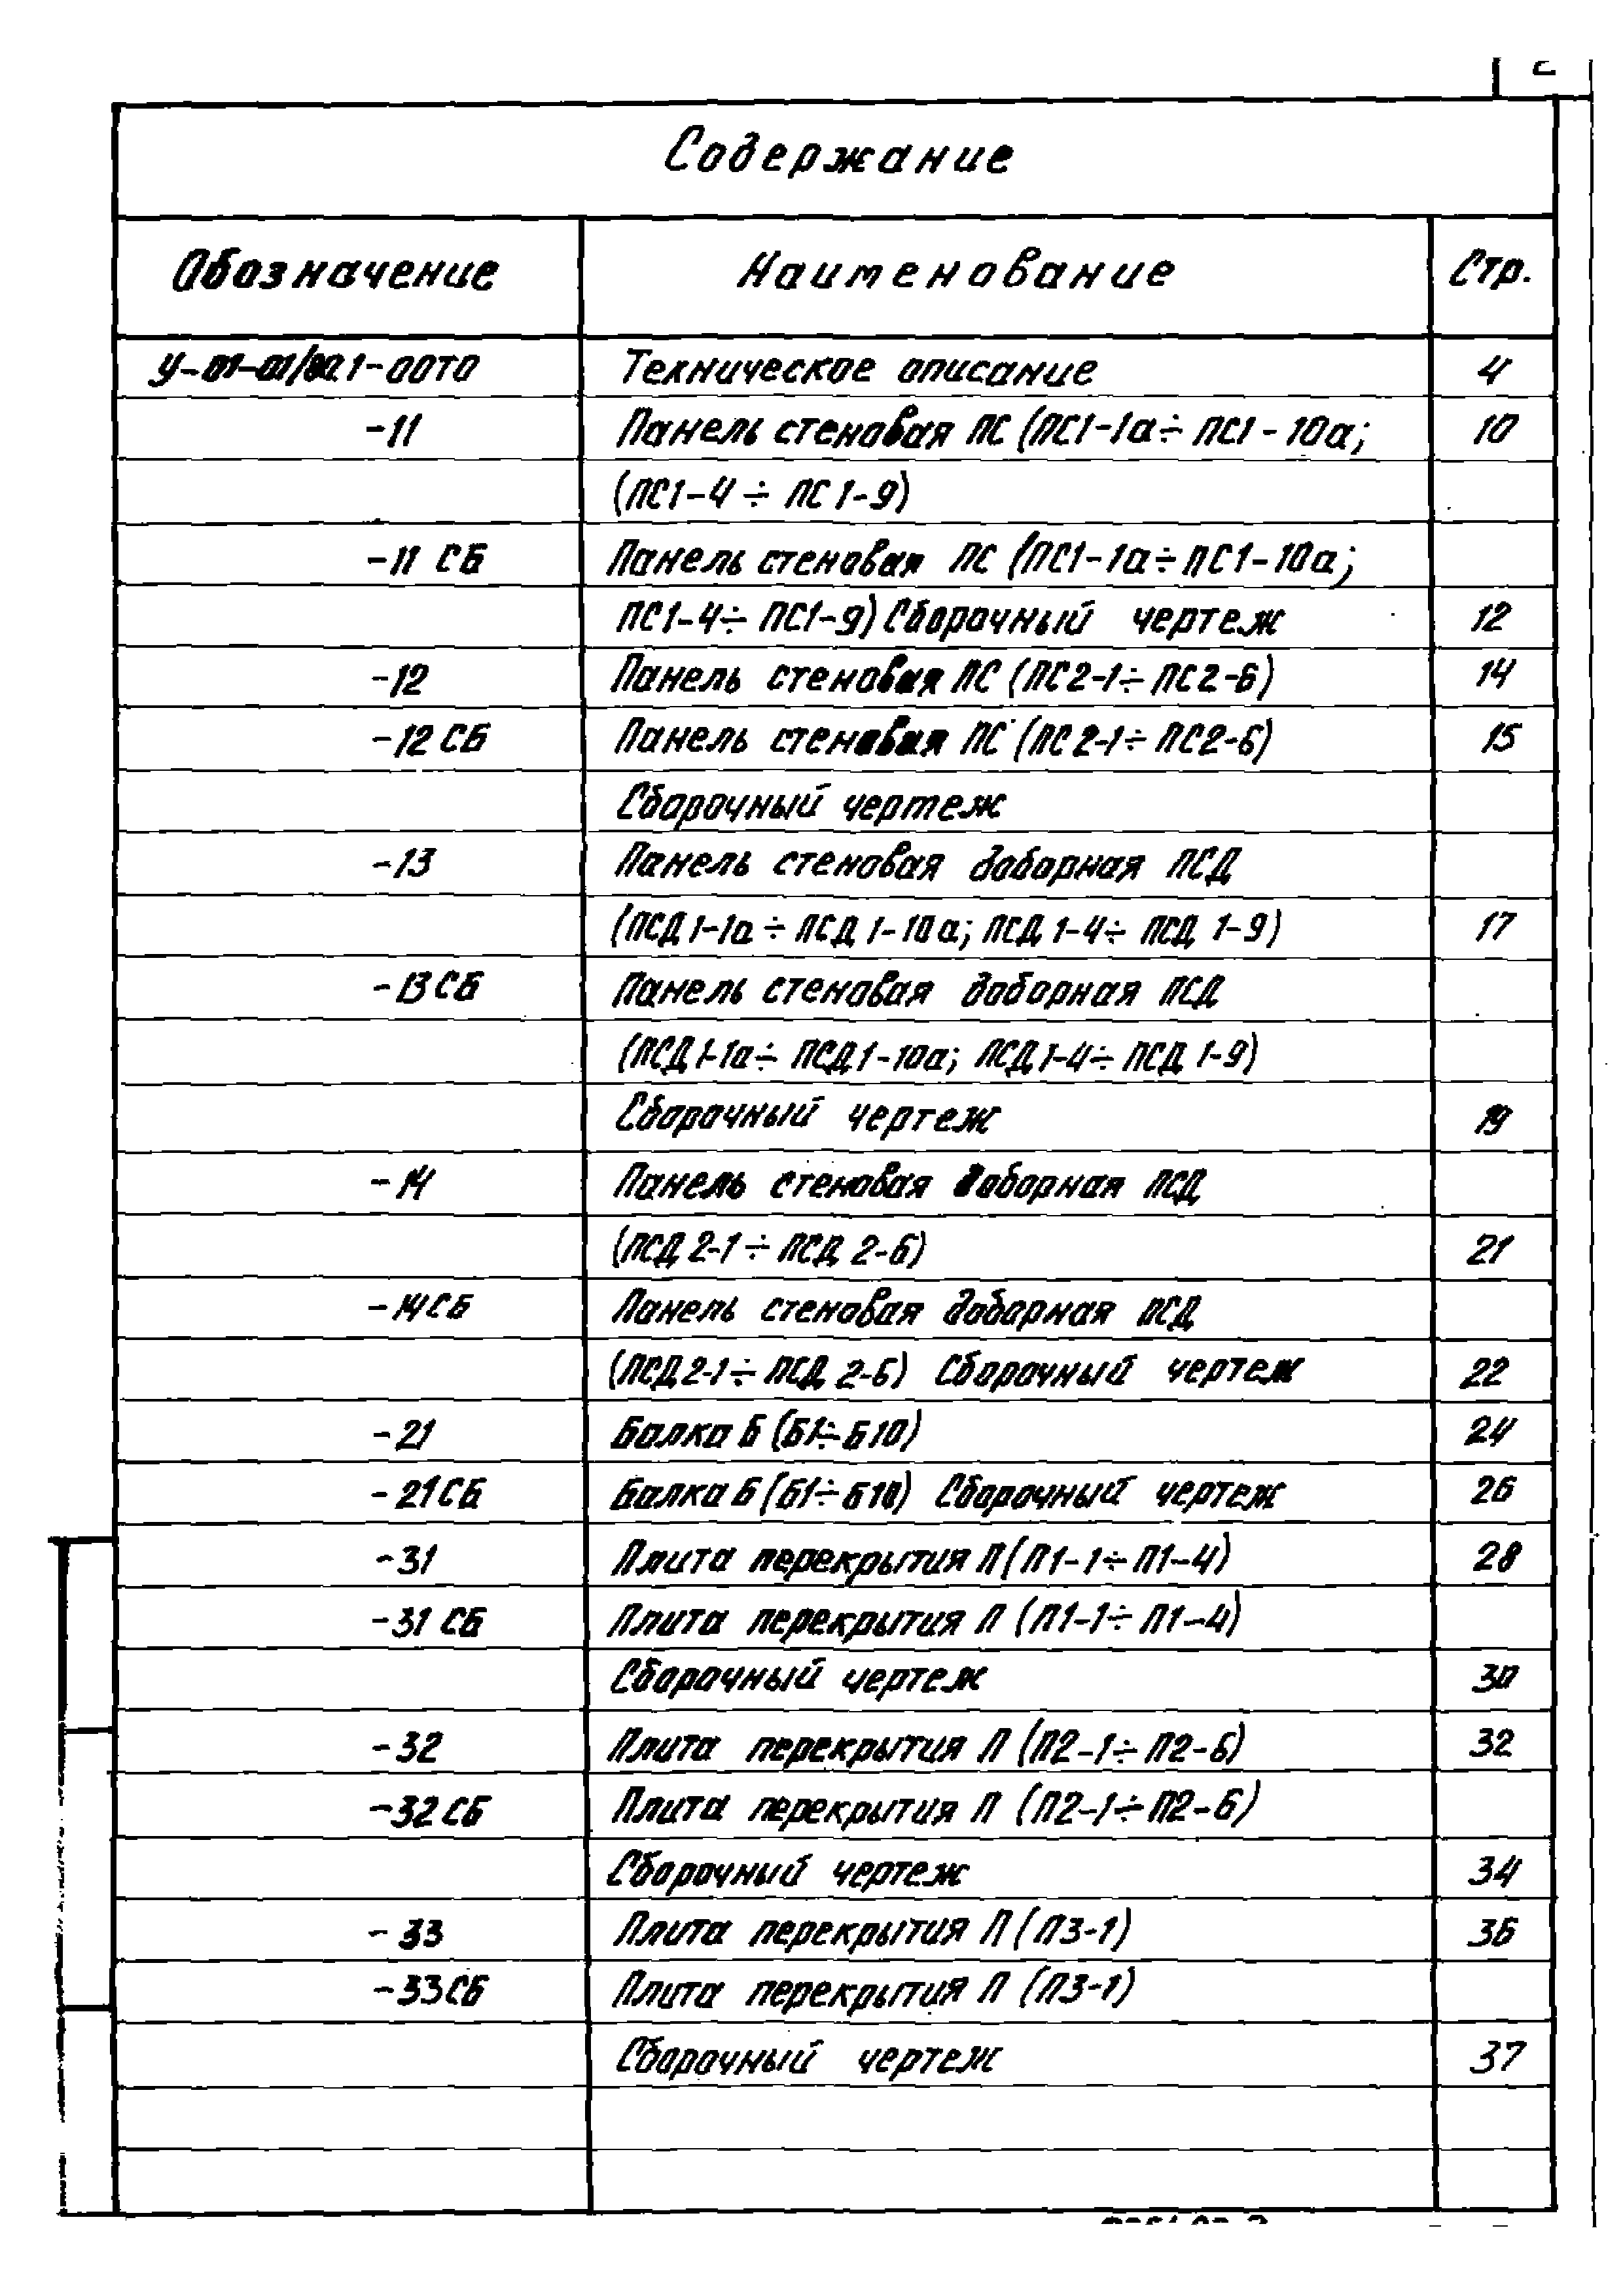 2
Содержание
Обозначение Наименование Стр.
У-01-01/80.1-00ТО Техническое описание 4
-11 Панель стеновая ПС (ПС1-1а÷ ПС1-10а; 10
(ПС1-4 ÷ ПС1-9)
-11 СБ Панель стеновая ПС (ПС1-1а÷ПС1-10а;
ПС1-4÷ ПС1-9) Сборочный чертеж 12
-12 Панель стеновая ПС (ПС2-1÷ ПС2-6) 14
-12 СБ Панель стеновая ПС (ПС2-1÷ ПС2-6) 15
Сборочный чертеж
-13 Панель стеновая доборная ПСД
(ПСД1-1а ÷ ПСД1-10а; ПСД1-4÷ ПСД 1-9) 17
-13 СБ Панель стеновая доборная ПСД
(ПСД1-1а÷ ПСД1-10а; ПСД1-4÷ ПСД 1-9)
Сборочный чертеж 19
-14 Панель стеновая доборная ПСД
(ПСД 2-1 ÷ ПСД 2-6) 21
-14 СБ Панель стеновая доборная ПСД
(ПСД2-1÷ ПСД 2-6) Сборочный чертеж 22
-21 Балка Б (Б1÷Б10) 24
-21 СБ Балка Б (Б1÷Б10) Сборочный чертеж 26
-31 Плита перекрытия П (П1-1÷ П1-4) 28
-31 СБ Плита перекрытия П (П1-1÷ П1-4)
Сборочный чертеж 30
-32 Плита перекрытия П (П2-1÷ П2-6) 32
-32 СБ Плита перекрытия П (П2-1÷П2-6)
Сборочный чертеж 34
-33 Плита перекрытия П (П3-1) 36
-33 СБ Плита перекрытия П (П3-1)
Сборочный чертеж 37